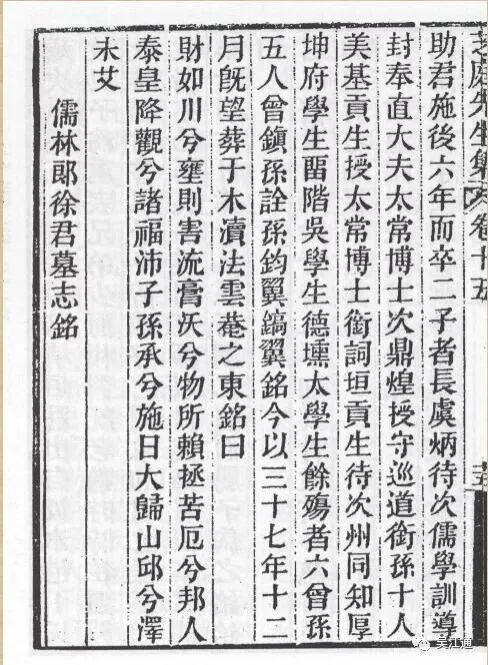 芝庭先生集 卷十五
助君施後六年而卒二子者長虞炳待次儒學訓導
封奉直大夫太常博士次鼎煌授守巡道銜孫十人
美基貢生授太常博士銜詞垣貢生待次州同知厚
坤府學生畱階吳學生德壎太學生餘殤者六曾孫
五人曾鎮孫詮孫鈞翼鎬翼銘今以三十七年十二
月旣望葬于木瀆法雲菴之東銘曰
財如川兮壅則害流膏沃兮物所賴拯苦厄兮邦人
泰皇降觀兮諸福沛子孫承兮施日大歸山邱兮澤
未艾
儒林郎徐君墓志銘
吴江通